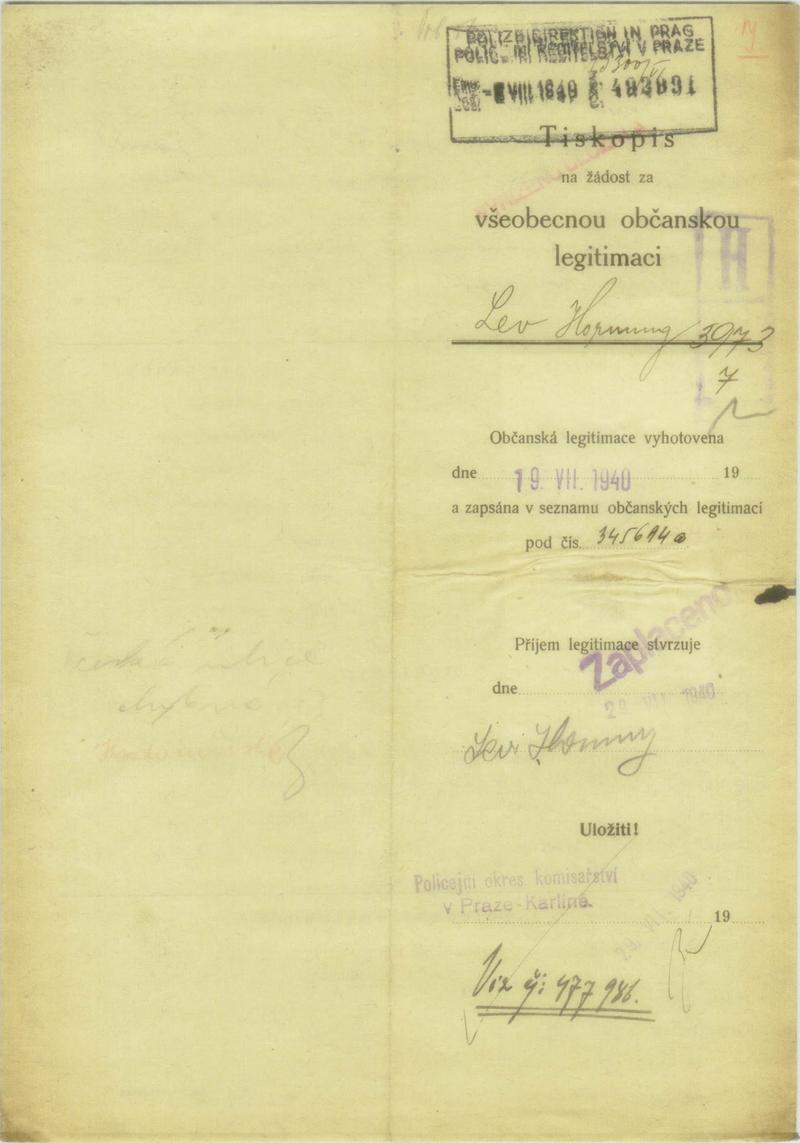 POLIZEIDIREKTION IN PRAG
POLIC. ŘEDITELSTVÍ V PRAZE
VIII.1940 Č. 492091
Tiskopis
na žádost za
všeobecnou občanskou
legitimaci
H
Lev Hornung 3973
7
Občanská legitimace vyhotovena
dne 19. VII. 1940 19
a zapsána v seznamu občanských legitimací
pod čís. 345694a
Zaplaceno
Příjem legitimace stvrzuje
dne
29. VII. 1940
Lev Hornung
Uložiti!
Policejní okres. komisařství
v Praze-Karlíně.
29. VII. 1940
19
Viz čj: 477986.